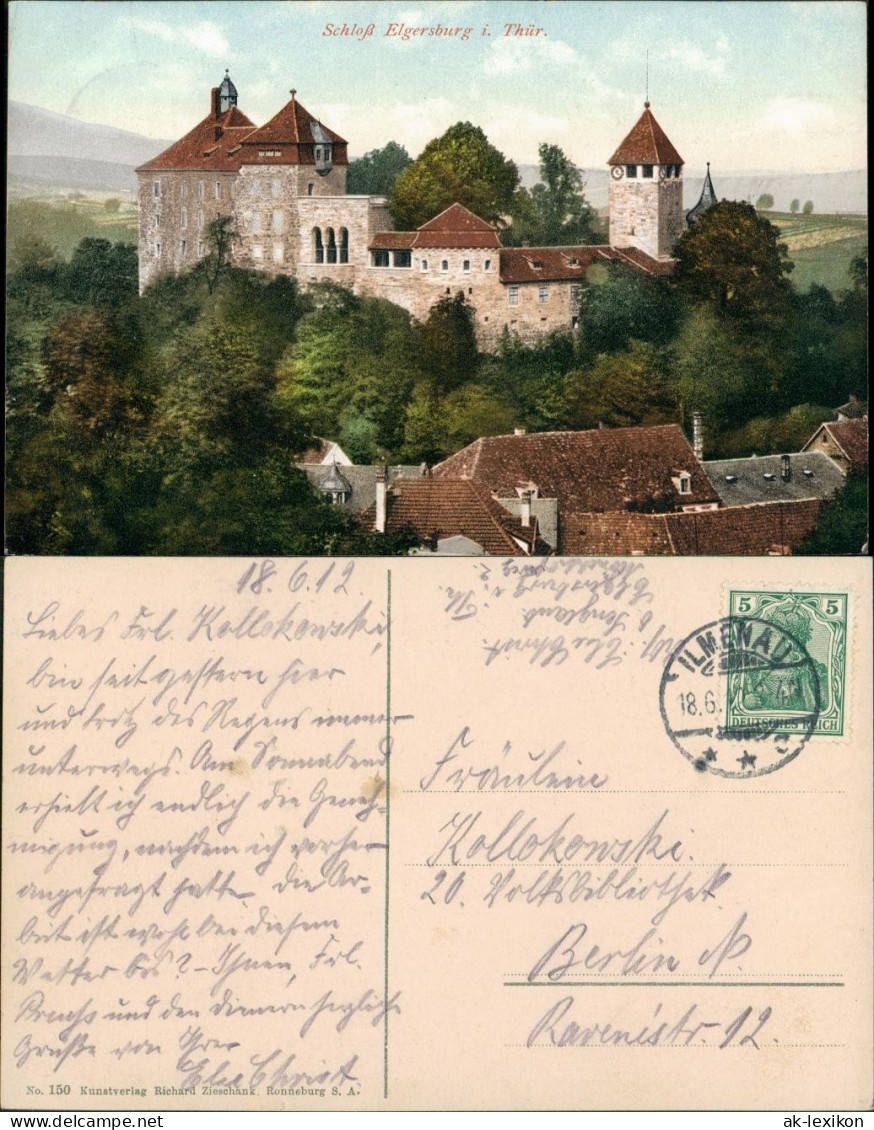 Schloß Elgersburg i. Thür.
18.6.12
Liebes Frl. Kollokowski,
bin seit gestern hier
und trotz des Regens immer
unterwegs. Am Sonnabend
erhielt ich endlich die Geneh-
migung, nachdem ich vorher
angefragt hatte. Die Ar-
beit ist wohl bei diesem
Wetter bös? - Ihnen, Frl.
und den herzliche
Grüße von Ihrer
Else Christ
No. 150 Kunstverlag Richard Zieschank, Ronneburg S. A.
Else Christ
Elgersburg i. Th.
5 5
DEUTSCHES REICH
ILMENAU
18.6.
Fräulein
Kollokowski.
20. Volksbibliothek
Berlin N.
Ravenéstr. 12.
ak-lexikon